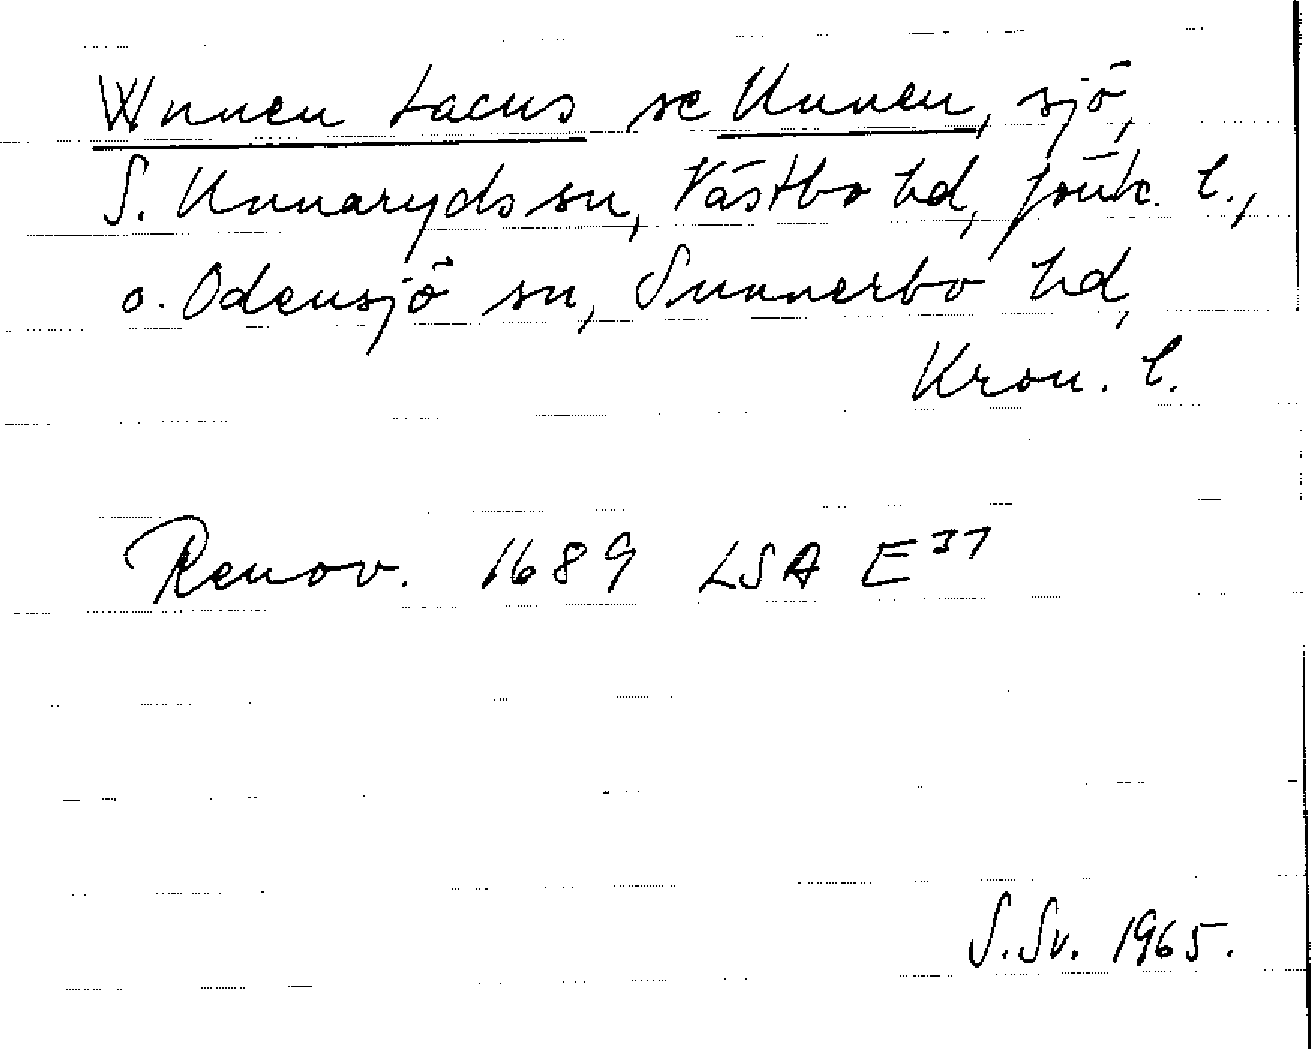 Wnnen Lacus se Unnen, sjö,
S. Unnaryds sn, Västbo hd, Jönk. l.,
o. Odensjö sn, Sunnerbo hd,
Kron. l.
Renov. 1689 LSA E 37
S. Sv. 1965.